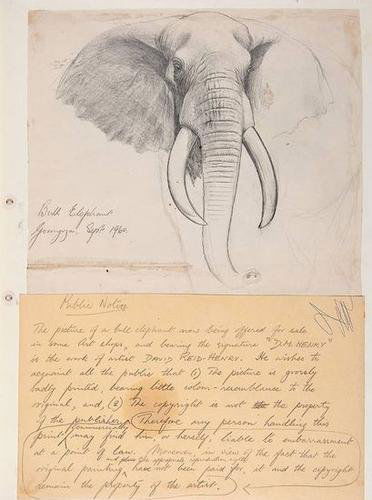 Bull Elephant
Sept. 1960.
Public Notice
The picture of a bull elephant now being offered for sale
in some Art shops, and bearing the signature "D.M. HENRY"
is the work of artist DAVID REID-HENRY. He wishes to
acquaint all the public that (1) The picture is grossly
badly printed, bearing little colour-resemblance to the
original, and, (2) The copyright is not the property
of the publisher. Therefore any person handling this
print commercially may find him, or herself, liable to embarrassment
at a point of law. Moreover, in view of the fact that the
original painting, have not been paid for, it and the copyright
remain the property of the artist.